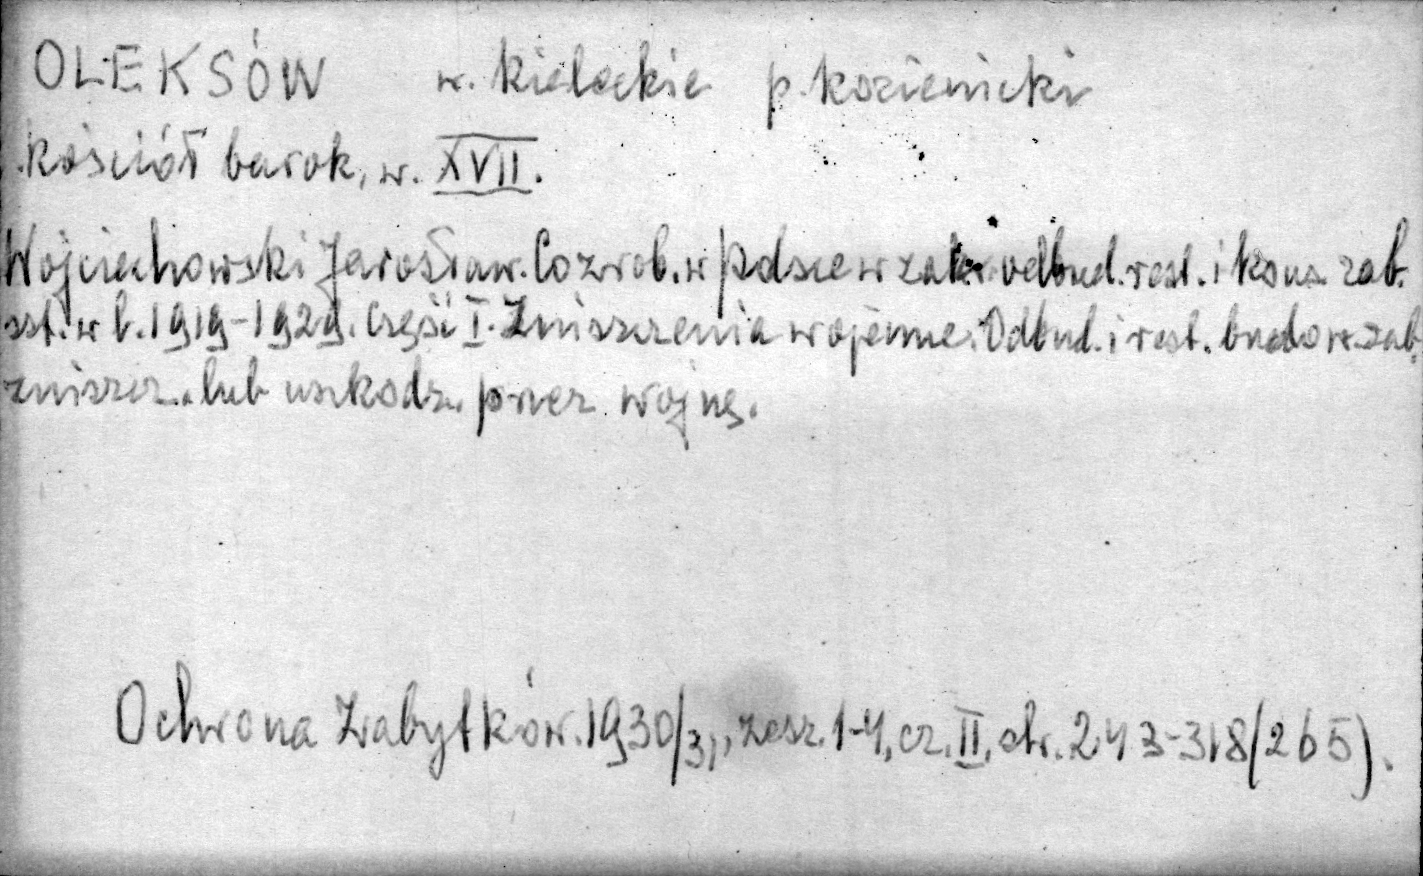 OLEKSÓW w. kieleckie p. kozienicki
kościół barok, w. XVII.
Wojciechowski Jarosław. Co zrob. w Polsce w zakr. odbud. rest. i kons. zab.
szt. w l. 1919-1929. Część I. Zniszczenia wojenne. Odbud. i rest. budow. zab.
zniszcz. lub uszkodz. przez wojnę.
Ochrona Zabytków. 1930/31, zesz. 1-4, cz. II, str. 243-318 (265).